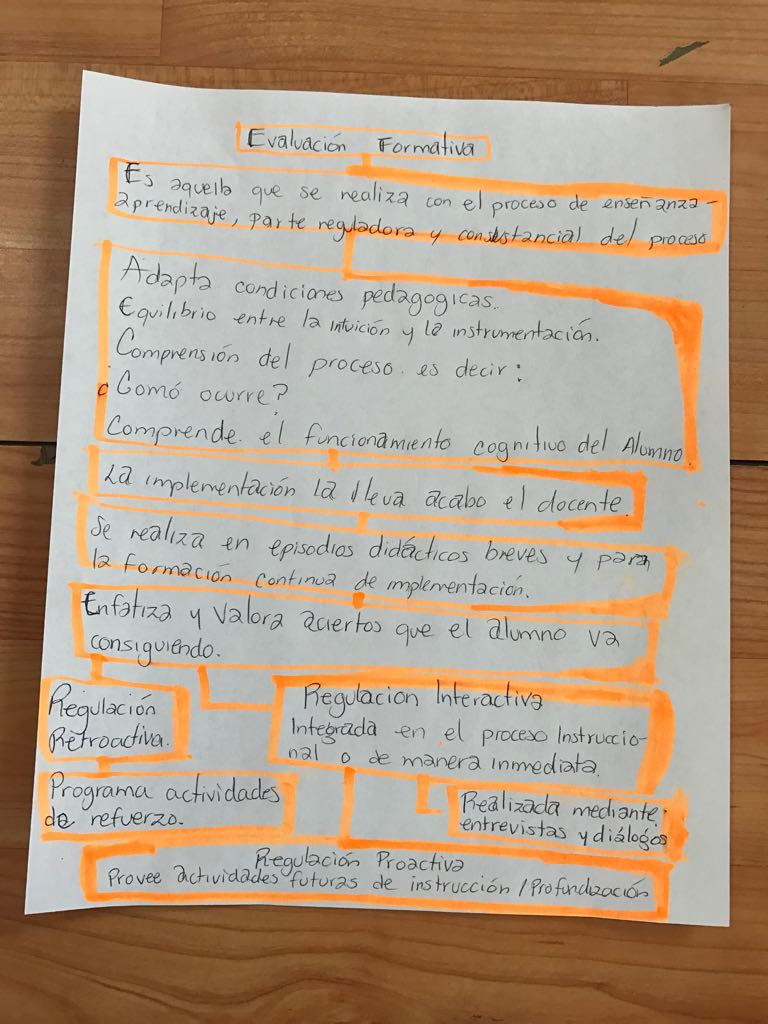 Evaluación Formativa
Es aquella que se realiza con el proceso de enseñanza-
aprendizaje, parte reguladora y consustancial del proceso
Adapta condiciones pedagogicas.
Equilibrio entre la intuición y la instrumentación.
Comprensión del proceso. es decir:
¿Comó ocurre?
Comprende el funcionamiento cognitivo del Alumno
La implementación la lleva acabo el docente.
Se realiza en episodios didácticos breves y para
la formación continua de implementación.
Enfatiza y Valora aciertos que el alumno va
consiguiendo.
Regulación
Retroactiva.
Regulacion Interactiva
Integrada en el proceso Instruccio-
nal o de manera inmediata.
Programa actividades
de refuerzo.
Realizada mediante
entrevistas y diálogos
Regulación Proactiva
Provee actividades futuras de instrucción / Profundización